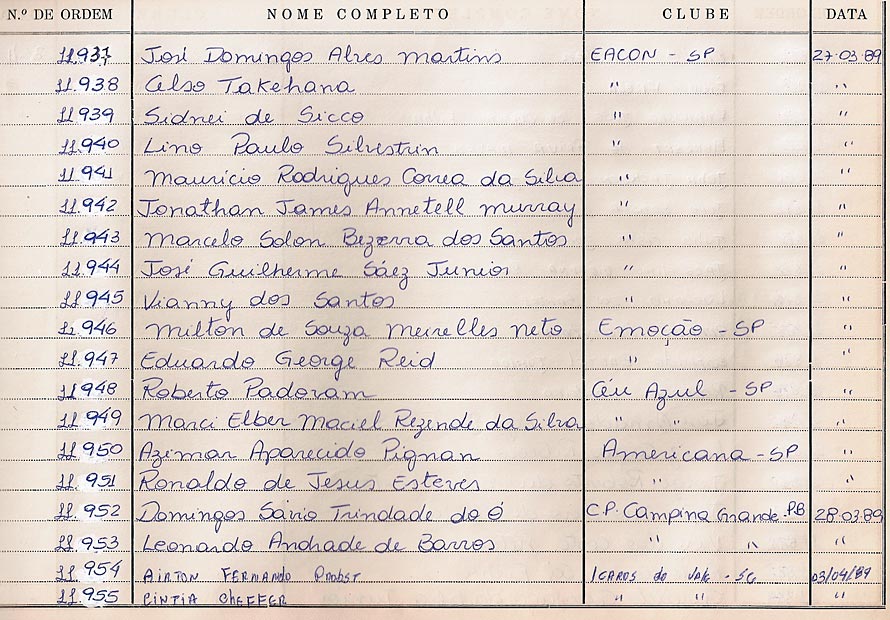 N.º DE ORDEM NOME COMPLETO CLUBE DATA
11.937 José Domingos Alves Martins EACON - SP 27.03.89
11.938 Celso Takehana " "
11.939 Sidnei de Sicco " "
11.940 Lino Paulo Silvestrin " "
11.941 Mauricio Rodrigues Correa da Silva " "
11.942 Jonathan James Annetell Murray " "
11.943 Marcelo Solon Bezerra dos Santos " "
11.944 José Guilherme Sáez Junior " "
11.945 Vianny dos Santos " "
11.946 Milton de Souza Meirelles Neto Emoção - SP "
11.947 Eduardo George Reid " "
11.948 Roberto Padovam Céu Azul - SP "
11.949 Marci Elber Maciel Rezende da Silva " " "
11.950 Azimar Aparecido Pignan Americana - SP "
11.951 Ronaldo de Jesus Esteves " "
11.952 Domingos Sávio Trindade do Ó C.P. Campina Grande PB 28.03.89
11.953 Leonardo Andrade de Barros " " "
11.954 AIRTON FERNANDO Probst ICAROS do Vale - SC 03/04/89
11.955 CINTIA CHEFFER " " "